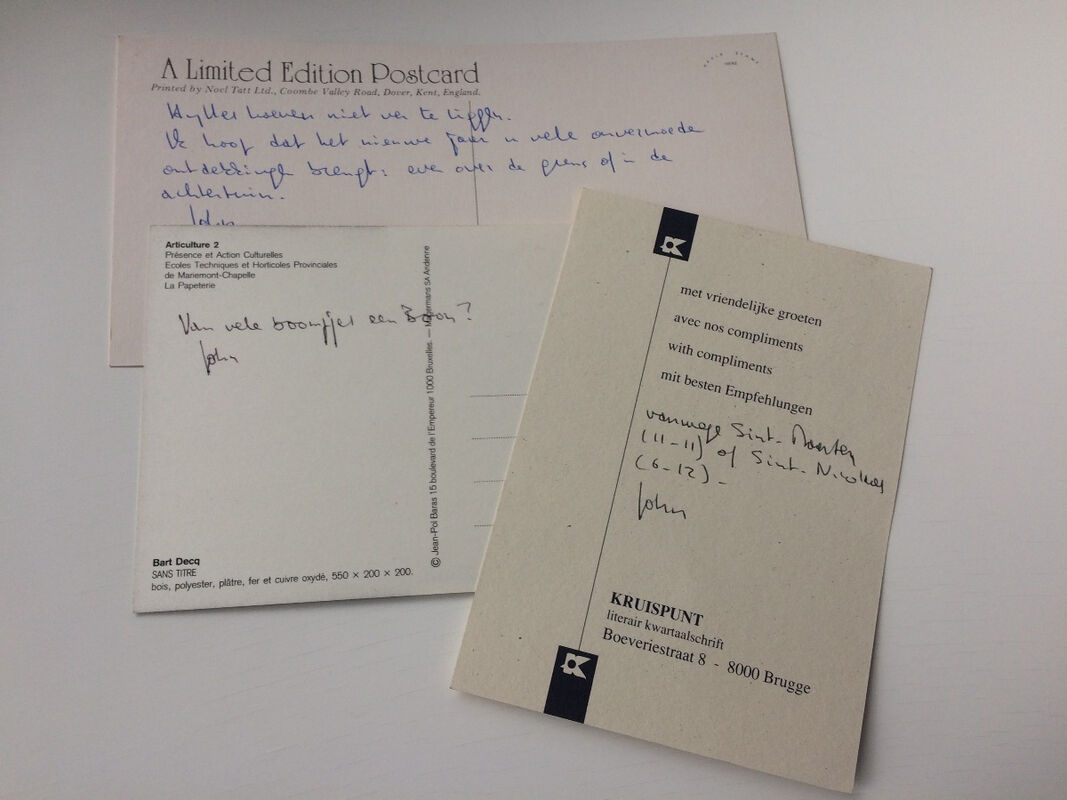 A Limited Edition Postcard
Printed by Noel Tatt Ltd., Coombe Valley Road, Dover, Kent, England.
PLACE STAMP
HERE
hoeven niet ver te liggen.
Ik hoop dat het nieuwe jaar u vele onvermoede
ontdekkingen brengt: even over de grens of in de
achtertuin.
John
Articulture 2
Présence et Action Culturelles
Ecoles Techniques et Horticoles Provinciales
de Mariemont-Chapelle
La Papeterie
Van vele boompjes een Boon?
John
© Jean-Pol Baras 15 boulevard de l'Empereur 1000 Bruxelles. — Magermans SA Andenne
Bart Decq
SANS TITRE
bois, polyester, plâtre, fer et cuivre oxydé, 550 × 200 × 200.
met vriendelijke groeten
avec nos compliments
with compliments
mit besten Empfehlungen
vanwege Sint-Maarten
(11-11) of Sint-Nicolaas
(6-12)-
John
KRUISPUNT
literair kwartaalschrift
Boeveriestraat 8 - 8000 Brugge